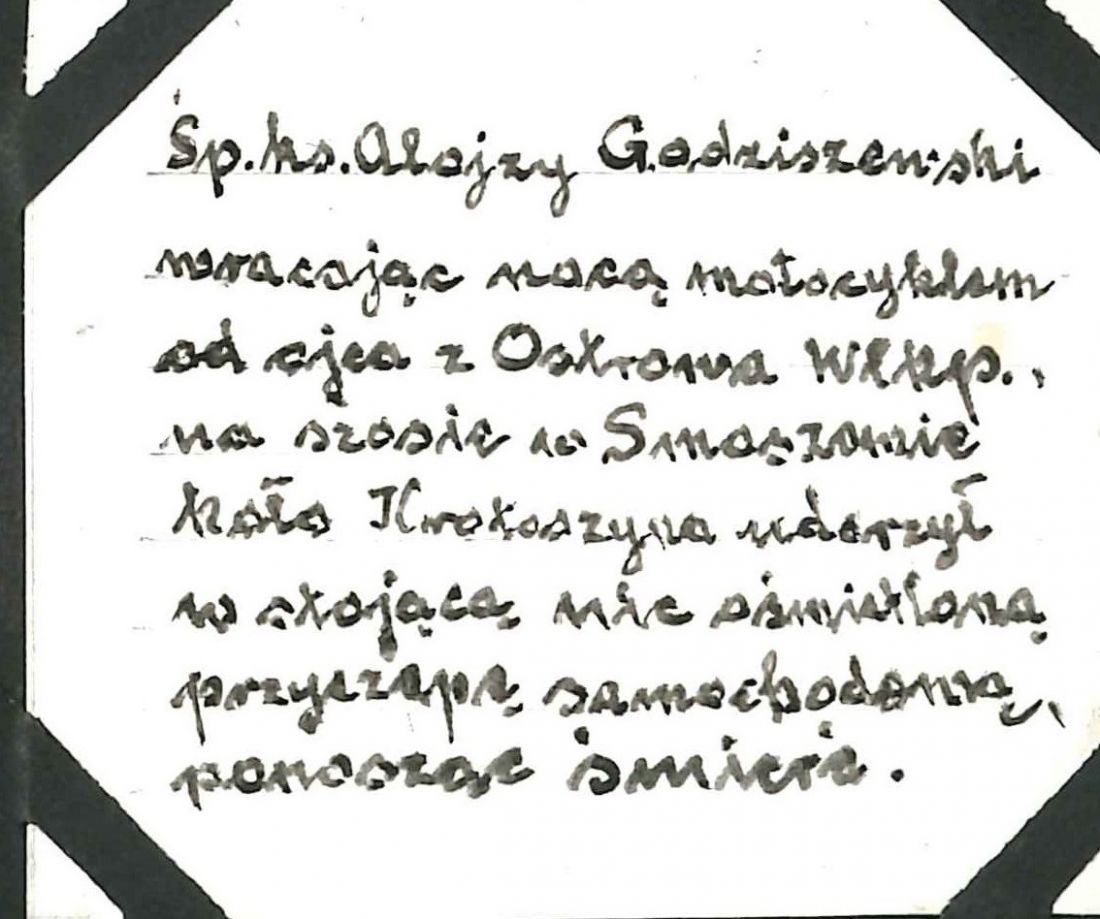 Śp. ks. Alojzy Godziszewski
wracając nocą motocyklem
od ojca z Ostrowa Wlkp.,
na szosie w Smoszewie
koło Krotoszyna uderzył
w stojącą nie oświetloną
przyczepę samochodową,
ponosząc śmierć.